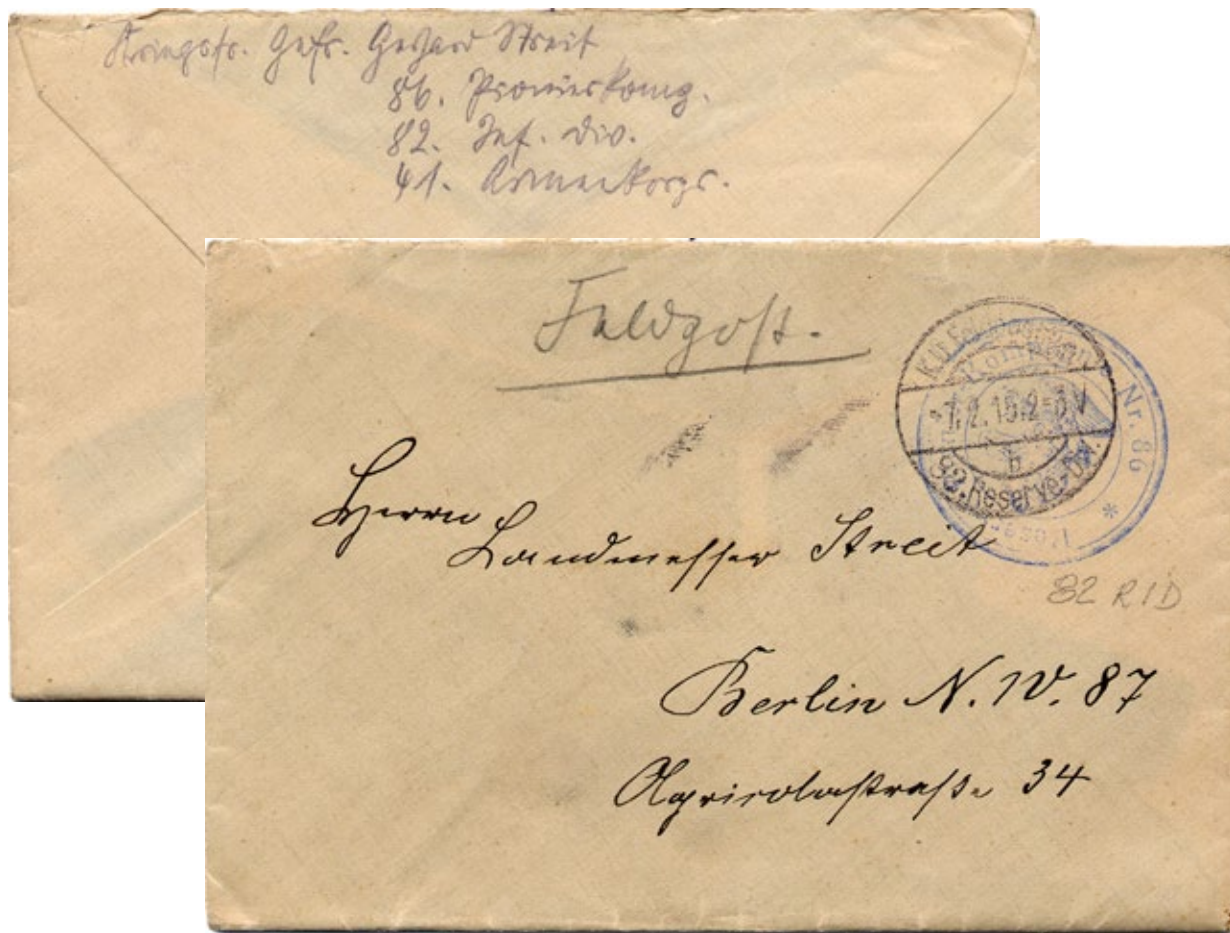 Kriegsfr. Gefr. Gerhard Streit
86. Pionierkomp.
82. Inf. Div.
41. Armeekorps.
Feldpost.
Nr. 86 *
2.15.2-3V
b
82.Reserve-Div.
Herrn
Landmesser Streit
82 RID
Berlin N.W. 87
Agricolastraße 34